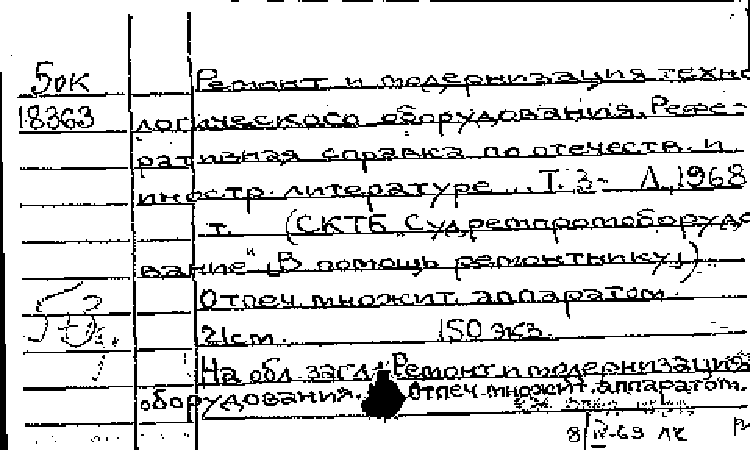 5ок
18363
Ремонт и модернизация техно
логического оборудования. Рефе-
ративная справка по отечеств. и
иностр. литературе... Т. 3- Л., 1968
т. (СКТБ „Судремпромоборудо
вание". „В помощь ремонтнику")
Отпеч. множит. аппаратом.
21см. 150 экз.
На обл. загл.: Ремонт и модернизация
оборудования. Отпеч. множит. аппаратом.
8/IV-69 лк